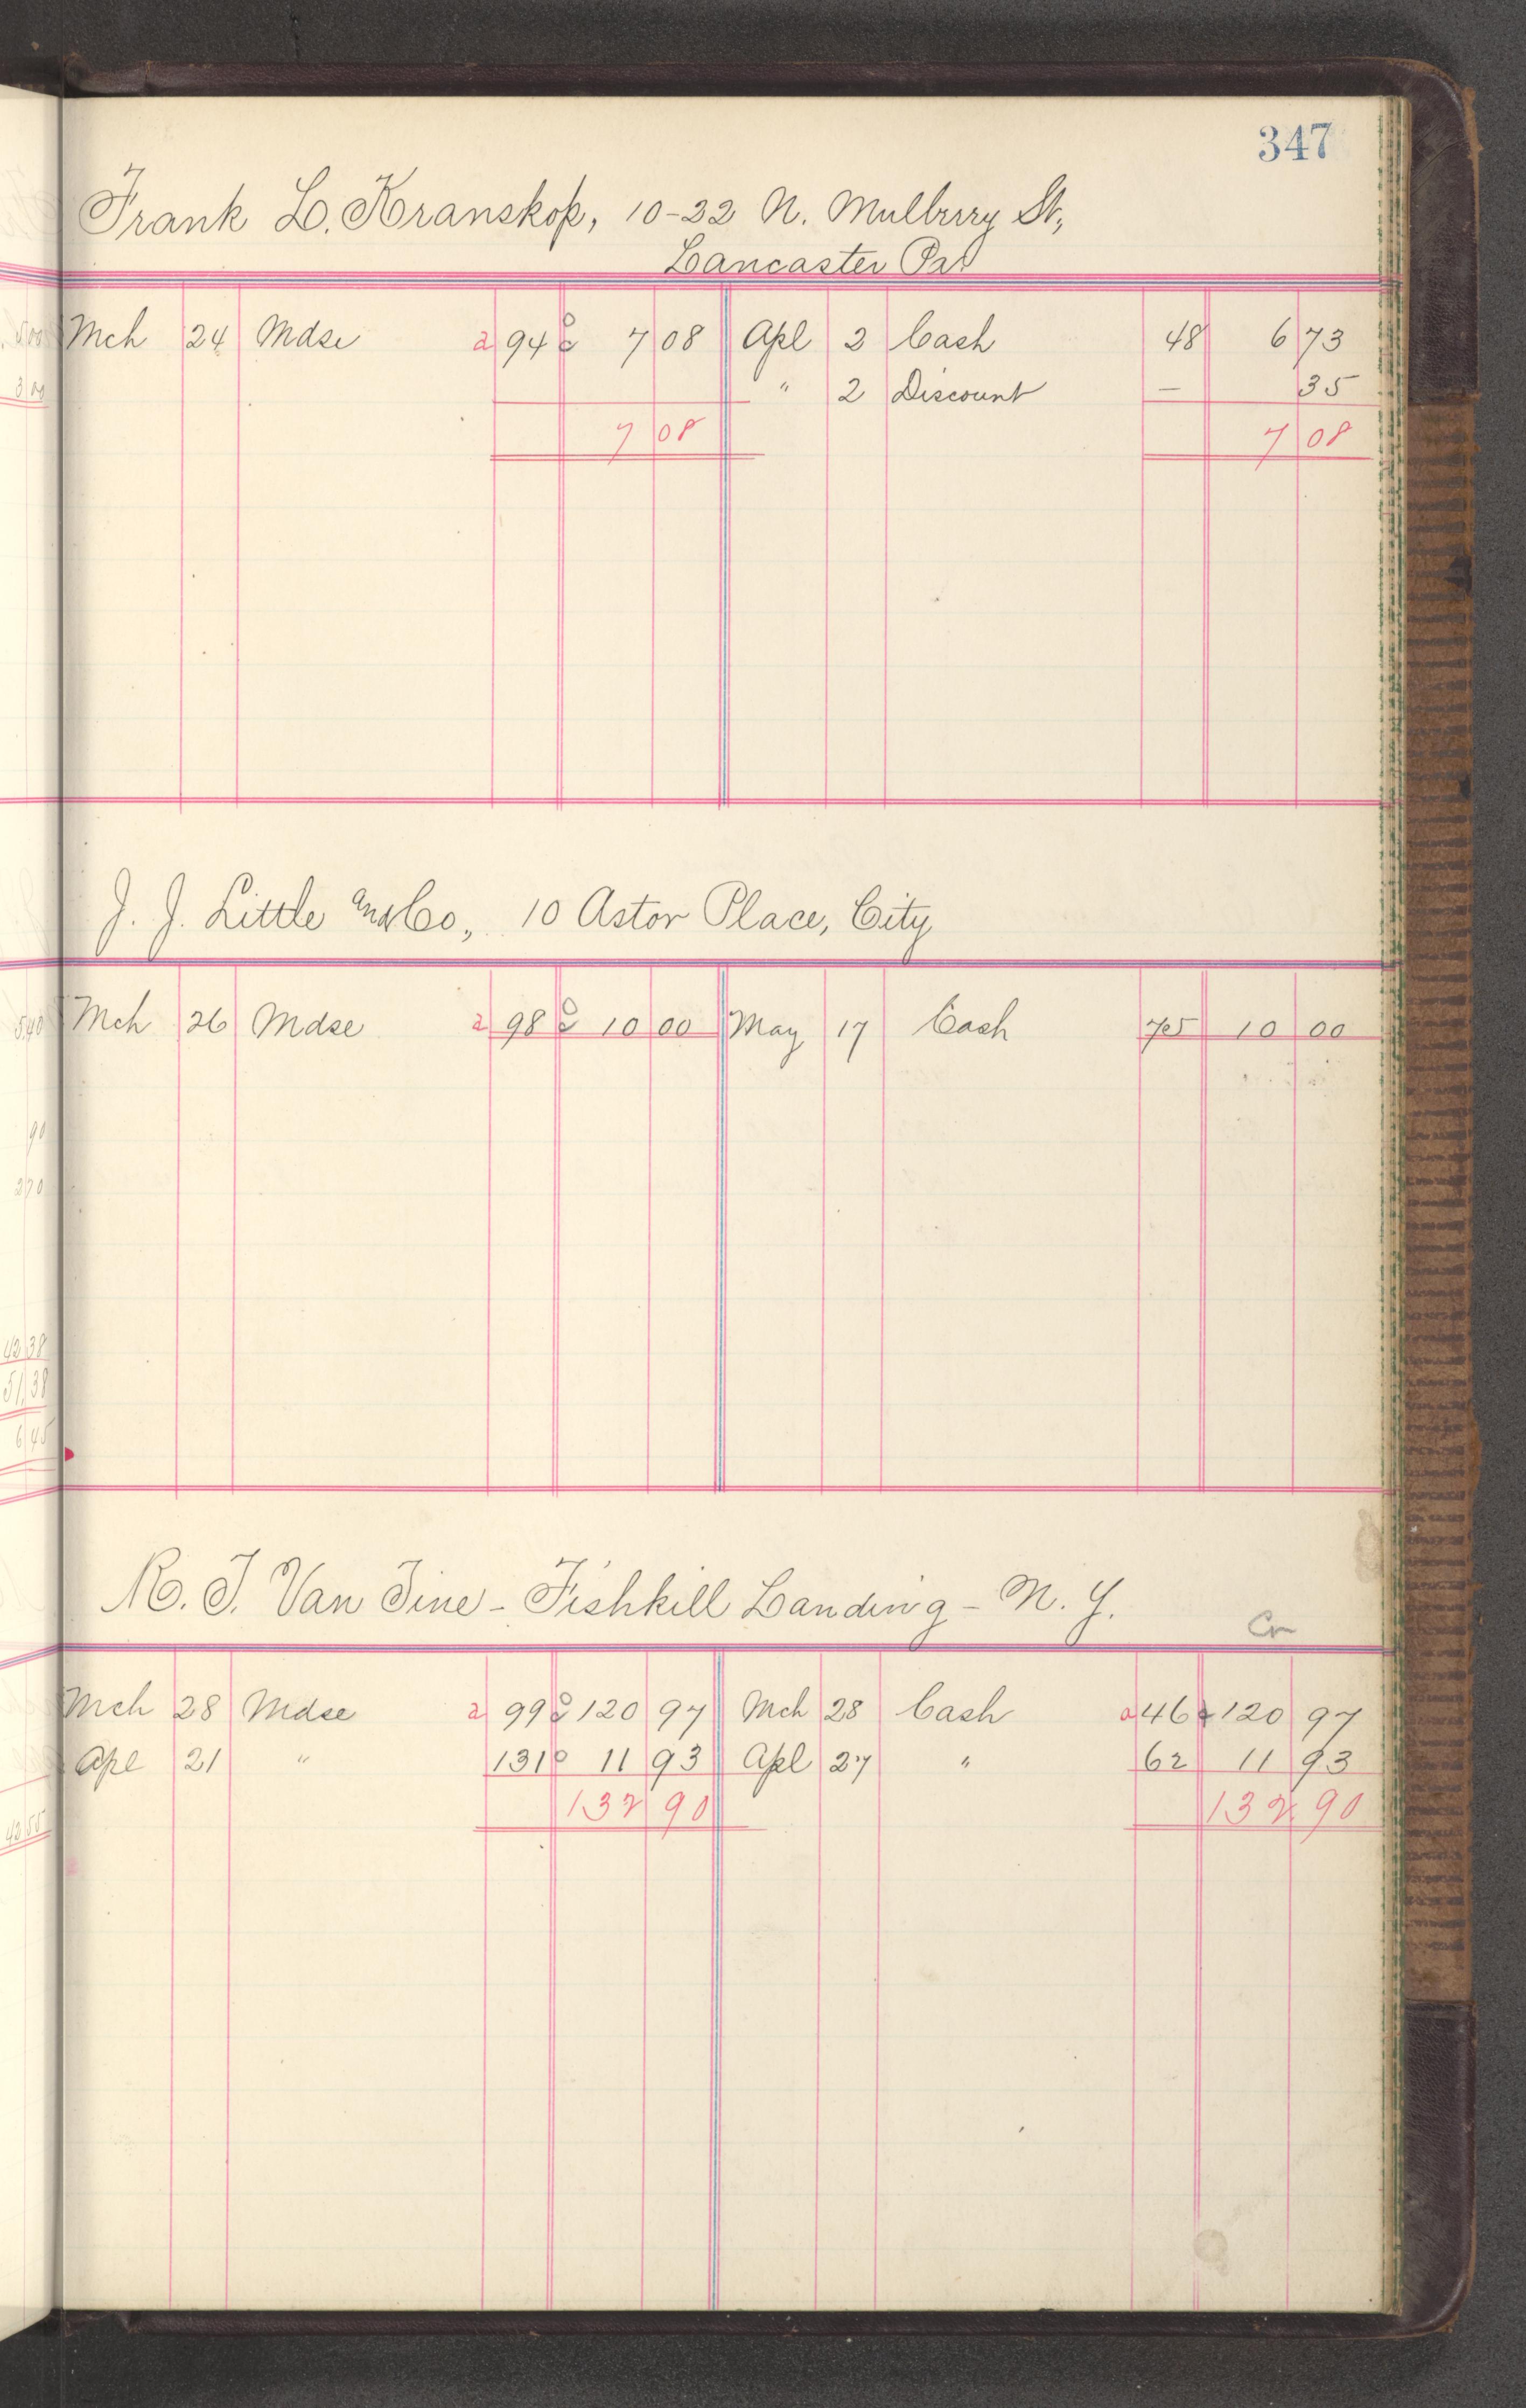 347
Frank L. Kranskop, 10-22 N. Mulbrry St,
Lancaster Pa
Mch 24 Mdse a 94 7 08 Apl 2 Cash 48 6 73
" 2 Discount — 35
7 08 7 08
J. J. Little and Co, 10 Astor Place, City
Mch 26 Mdse a 98 10 00 May 17 Cash 75 10 00
R. T. Van Tine - Fishkill Landing - N. Y.
Cr
Mch 28 Mdse a 99 120 97 Mch 28 Cash a 46 120 97
Apl 21 " 131 11 93 Apl 27 " 62 11 93
132 90 132 90